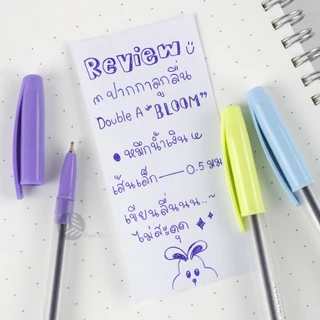 Review
ปากกาลูกลื่น
Double A "BLOOM"
หมึกน้ำเงิน
เส้นเล็ก — 0.5 มม
เขียนลื่นนน..~
ไม่สะดุด